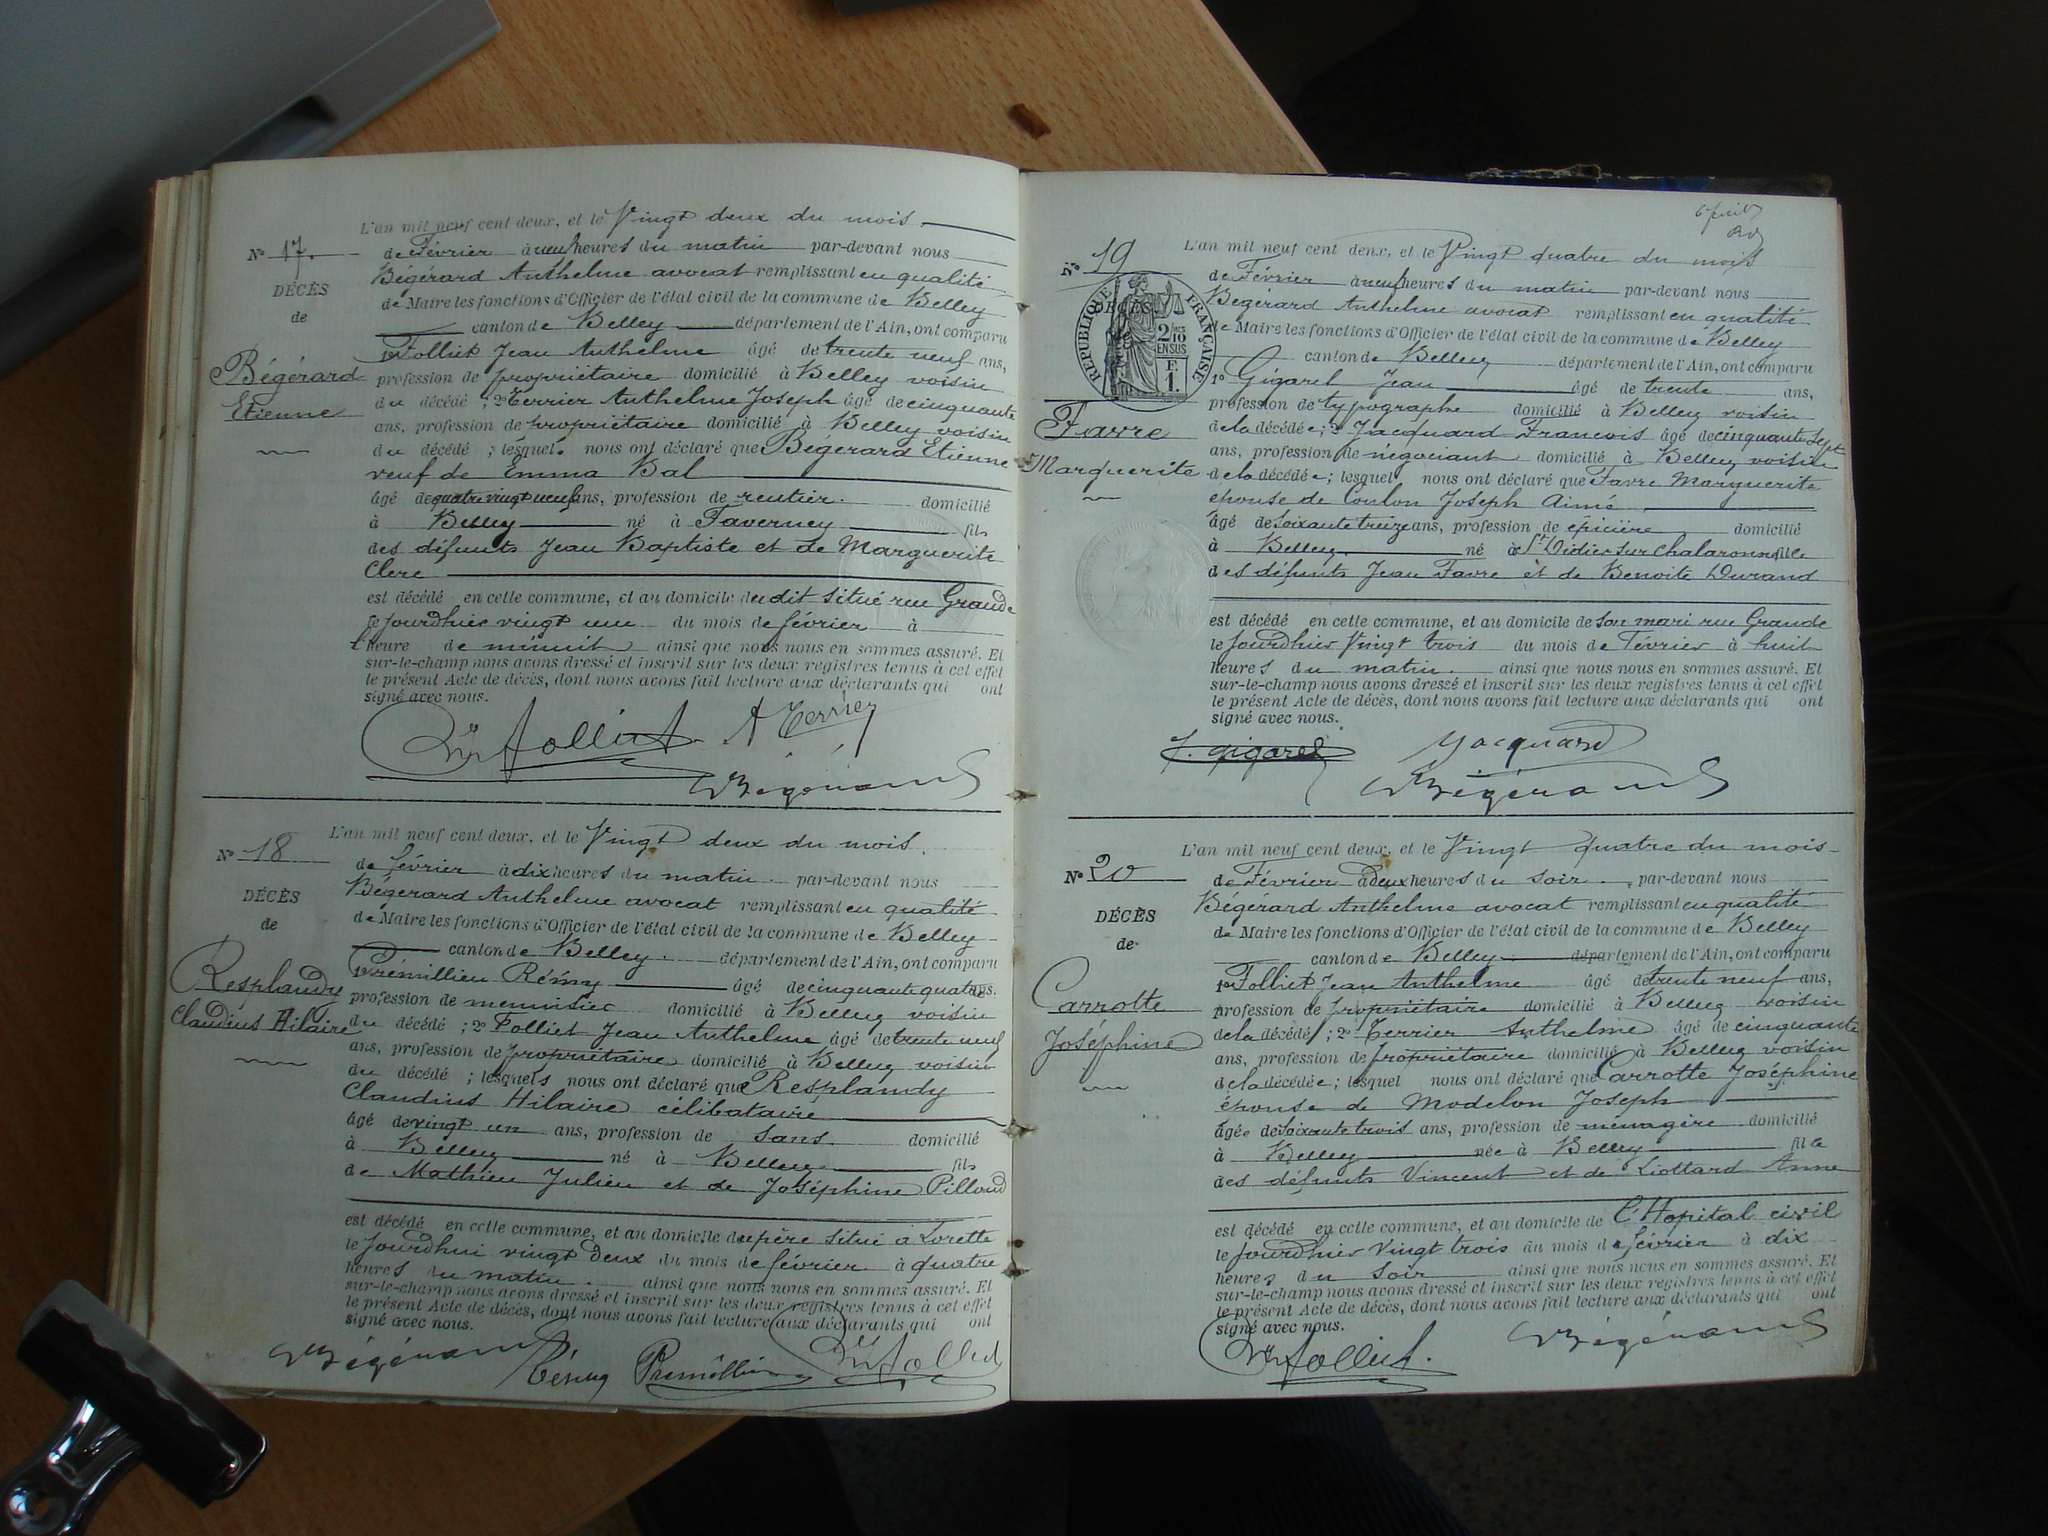 L'an mil neuf cent deux, et le Vingt deux du mois
No 17.
de Février à neuf heures du matin par-devant nous
Bégérard Anthelme avocat remplissant en qualité
DÉCÈS
de Maire les fonctions d'Officier de l'état civil de la commune de Belley
de
canton de Belley département de l'Ain, ont comparu
1o Folliet Jean Anthelme âgé de trente neuf ans,
Bégérard
profession de propriétaire domicilié à Belley voisin
Etienne
du décédé ; 2o Terrier Anthelme Joseph âgé de cinquante
ans, profession de propriétaire domicilié à Belley voisin
du décédé ; lesquels nous ont déclaré que Bégérard Etienne
veuf de Emma Bal
âgé de quatre vingt neuf ans, profession de rentier. domicilié
à Belley né à Faverney fils
des défunts Jean Baptiste et de Marguerite
Clerc
est décédé en cette commune, et au domicile du dit situé rue Grande
le jourdhier vingt un du mois de février à
l'heure de minuit ainsi que nous nous en sommes assuré. Et
sur-le-champ nous avons dressé et inscrit sur les deux registres tenus à cet effet
le présent Acte de décès, dont nous avons fait lecture aux déclarants qui ont
signé avec nous.
Folliet A Terrier
Bégérard
L'an mil neuf cent deux, et le Vingt deux du mois.
No 18
de février à dix heures du matin par-devant nous
Bégérard Anthelme avocat remplissant en qualité
DÉCÈS
de Maire les fonctions d'Officier de l'état civil de la commune de Belley
de
canton de Belley département de l'Ain, ont comparu
1o Prémillieu Rémy âgé de cinquante quatre ans,
Resplandy
profession de menuisier domicilié à Belley voisin
Claudius Hilaire
du décédé ; 2o Folliet Jean Anthelme âgé de trente neuf
ans, profession de propriétaire domicilié à Belley voisin
du décédé ; lesquels nous ont déclaré que Resplandy
Claudius Hilaire célibataire
âgé de vingt un ans, profession de sans. domicilié
à Belley né à Belley fils
de Mathieu Julien et de Joséphine Pilloud
est décédé en cette commune, et au domicile du père situé à Lorette
le Jourdhui vingt deux du mois de février à quatre
heures du matin ainsi que nous nous en sommes assuré. Et
sur-le-champ nous avons dressé et inscrit sur les deux registres tenus à cet effet
le présent Acte de décès, dont nous avons fait lecture aux déclarants qui ont
signé avec nous.
Bégérard Rémy Prémillieu Folliet
L'an mil neuf cent deux, et le Vingt quatre du mois
No 19
de Février à neuf heures du matin par-devant nous
Bégérard Anthelme avocat remplissant en qualité
DÉCÈS
de
RÉPUBLIQUE FRANÇAISE
2/10 EN SUS
F. 1.
de Maire les fonctions d'Officier de l'état civil de la commune de Belley
canton de Belley département de l'Ain, ont comparu
1o Gigarel Jean âgé de trente ans,
profession de typographe domicilié à Belley voisin
Favre
de la décédée ; 2o Jacquard François âgé de cinquante sept
ans, profession de négociant domicilié à Belley voisin
Marguerite
de la décédée ; lesquel nous ont déclaré que Favre Marguerite
épouse de Coulon Joseph Aimé
âgé de soixante treize ans, profession de épicière domicilié
à Belley né à St Didier sur Chalaronne fille
des défunts Jean Favre et de Benoite Durand
est décédé en cette commune, et au domicile de son mari rue Grande
le Jourdhier Vingt trois du mois de Février à huit
heures du matin. ainsi que nous nous en sommes assuré. Et
sur-le-champ nous avons dressé et inscrit sur les deux registres tenus à cet effet
le présent Acte de décès, dont nous avons fait lecture aux déclarants qui ont
signé avec nous.
J. Gigarel Jacquard
Bégérard
L'an mil neuf cent deux, et le Vingt quatre du mois
No 20
de Février à deux heures du soir. par-devant nous
Bégérard Anthelme avocat remplissant en qualité
DÉCÈS
de Maire les fonctions d'Officier de l'état civil de la commune de Belley
de
canton de Belley département de l'Ain, ont comparu
1o Folliet Jean Anthelme âgé de trente neuf ans,
Carrotte
profession de propriétaire domicilié à Belley voisin
Joséphine
de la décédé ; 2o Terrier Anthelme âgé de cinquante
ans, profession de propriétaire domicilié à Belley voisin
de la décédée ; lesquel nous ont déclaré que Carrotte Joséphine
épouse de Modelon Joseph
âgée de soixante trois ans, profession de ménagère domicilié
à Belley née à Belley fille
des défunts Vincent et de Liottard Anne
est décédé en cette commune, et au domicile de l'Hopital civil
le jourdhier Vingt trois du mois de février à dix
heures du soir ainsi que nous nous en sommes assuré. Et
sur-le-champ nous avons dressé et inscrit sur les deux registres tenus à cet effet
le présent Acte de décès, dont nous avons fait lecture aux déclarants qui ont
signé avec nous.
Folliet. Bégérard